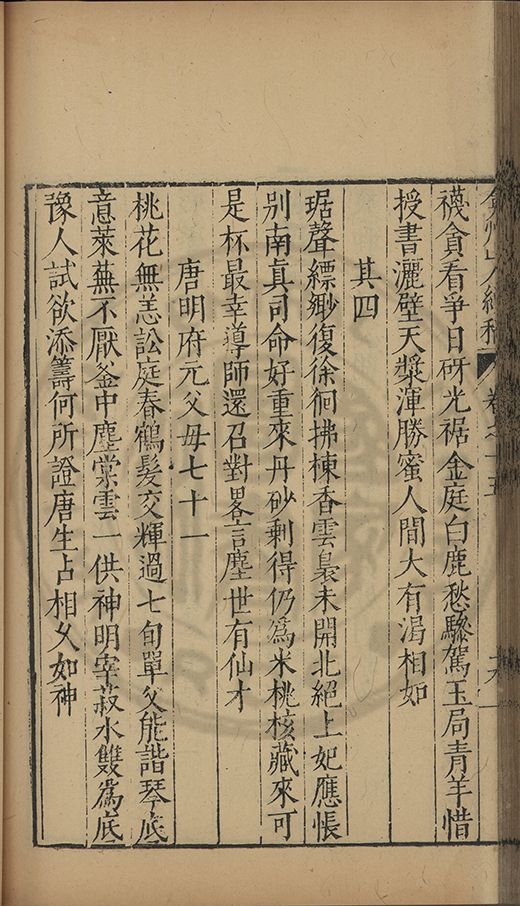 襪貪看爭日砑光裾金庭白鹿愁驂駕玉局青羊惜
授書灑壁天漿渾勝蜜人間大有渴相如
其四
琚聲縹緲復徐徊拂棟香雲裊未開北絕上妃應悵
别南真司命好重來丹砂剩得仍為米桃核藏來可
是杯最幸導師還召對畧言塵世有仙才
唐明府元父母七十一
桃花無恙訟庭春鶴髮交輝過七旬單父能諧琴底
意萊蕪不厭釜中塵棠雲一供神明宰菽水雙為底
豫人試欲添籌何所證唐生占相久如神